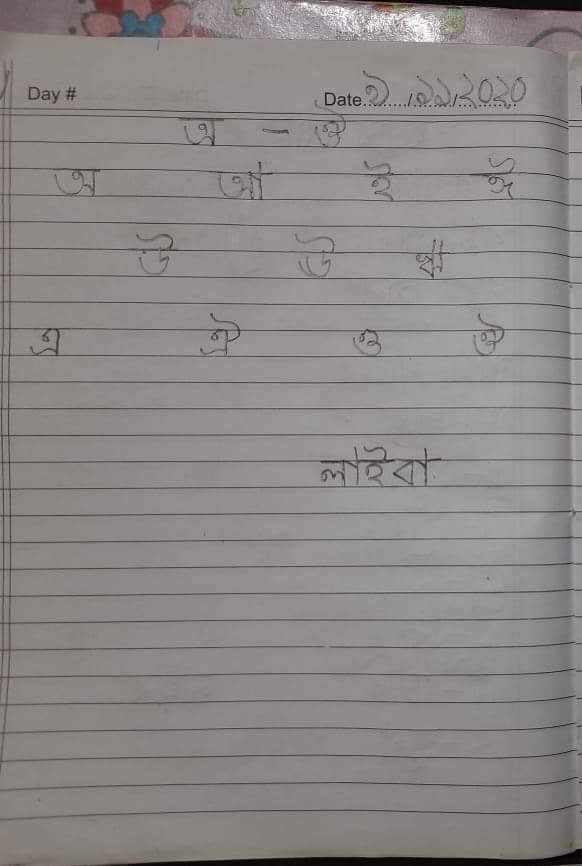 Day # Date ১/১১/২০২০
অ - ঔ
অ আ ই ঈ
উ ঊ ঋ
এ ঐ ও ঔ
লাইবা